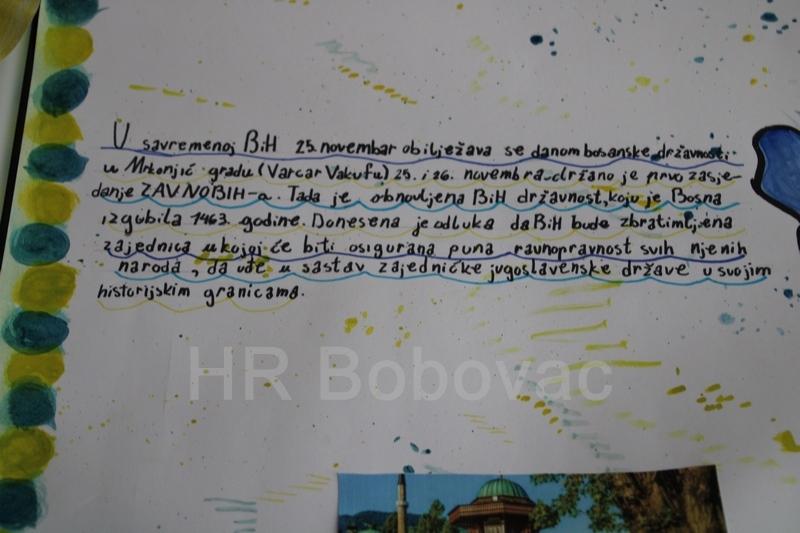 U savremenoj BiH 25. novembar obilježava se danom bosanske državnosti
u Mrkonjić gradu (Varcar Vakufu) 25. i 26. novembra održano je prvo zasje-
danje ZAVNOBIH-a. Tada je obnovljena BiH državnost, koju je Bosna
izgubila 1463. godine. Donesena je odluka da BiH bude zbratimljena
zajednica u kojoj će biti osigurana puna ravnopravnost svih njenih
naroda, da uđe u sastav zajedničke jugoslavenske države u svojim
historijskim granicama.
HR Bobovac